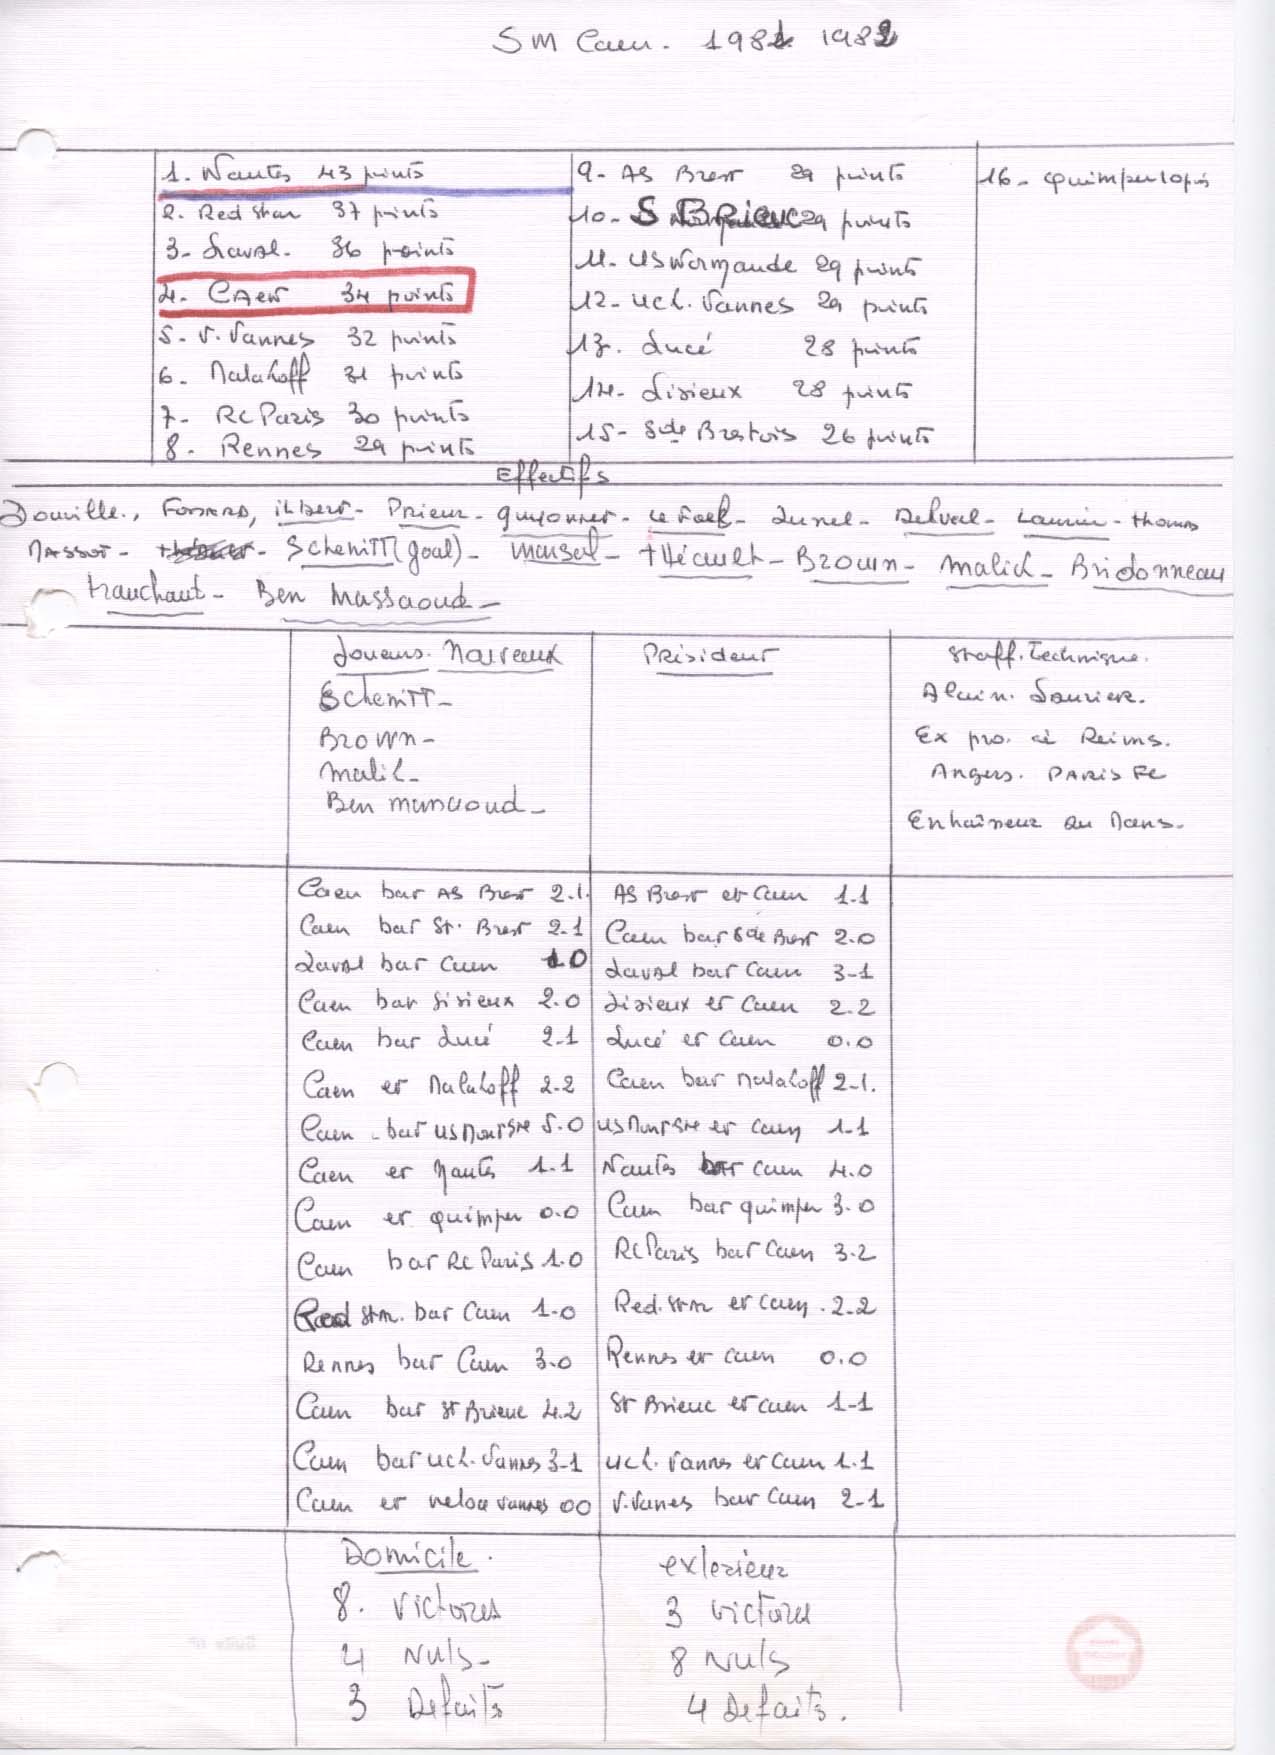 SM Caen. 1981 1982
1. Nantes 43 points
2. Red Star 37 points
3- Laval. 36 points
4. CAen 34 points
5- V. Vannes 32 points
6- Malakoff 31 points
7- RC Paris 30 points
8. Rennes 29 points
9- AS Brest 29 points
10- S BRieuc 29 points
11- US Normande 29 points
12- UCL. Vannes 29 points
13. Lucé 28 points
14- Lisieux 28 points
15- Sde Brestois 26 points
16- Quimper
Effectifs
Douville., Fossard, Prieur- Guyonnet- Le Foll- Lunel- Delval- Laurier- Thomas
Massot- Schemitt (goal)- Marsal- tHécault- Brown- Malich- Bridonneau
tranchant- Ben Massaoud-
Joueurs. Nouveaux
Schemitt-
Brown-
Malich-
Ben Massaoud-
Président
Staff. Technique.
Alain. Laurier.
Ex pro. à Reims.
Angers. PARIS FC
Entraîneur au Mans.
Caen bat AS Brest 2.1.
Caen bat St. Brest 2-1
Laval bat Caen 1.0
Caen bat Lisieux 2.0
Caen bat Lucé 2-1
Caen et Malakoff 2.2
Caen - bat US Mont Sre 5.0
Caen et Nantes 1.1
Caen et Quimper 0.0
Caen bat RC Paris 1.0
Red Star. bat Caen 1.0
Rennes bat Caen 3.0
Caen bat St Brieuc 4.2
Caen bat UCL. Vannes 3-1
Caen et Veloce Vannes 00
AS Brest et Caen 1.1
Caen bat Sde Brest 2.0
Laval bat Caen 3-1
Lisieux et Caen 2.2
Lucé et Caen 0.0
Caen bat Malakoff 2-1.
US Mont Sre et Caen 1-1
Nantes bat Caen 4.0
Caen bat Quimper 3.0
RC Paris bat Caen 3.2
Red. Star et Caen . 2-2
Rennes et Caen 0.0
St Brieuc et Caen 1-1
UCL. Vannes et Caen 1.1
V. Vanes bat Caen 2-1
Domicile.
8. Victoires
4 Nuls-
3 Defaits
exterieur
3 victoires
8 Nuls
4 Defaits.